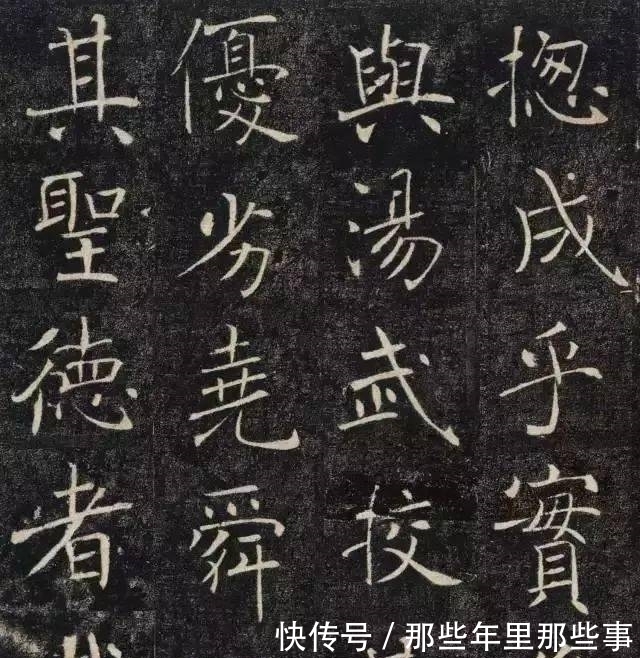 揔成乎實
與湯武挍
優劣堯舜
其聖德者
快传号 / 那些年里那些事